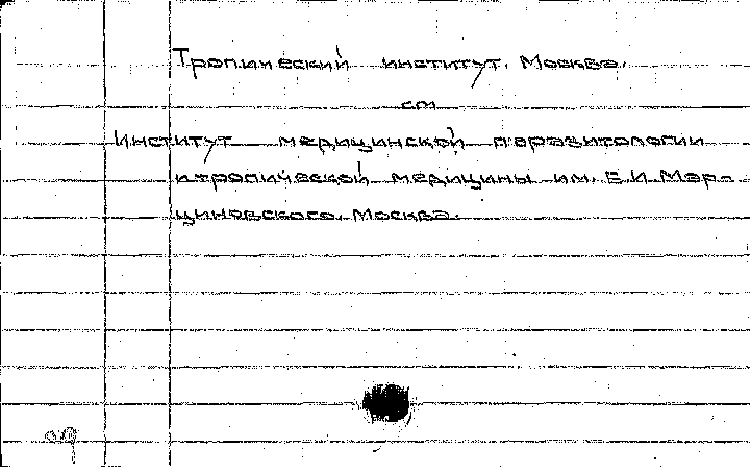 Тропический институт. Москва.
см
Институт медицинской паразитологии
и тропической медицины им. Е.И. Мар-
циновского. Москва.